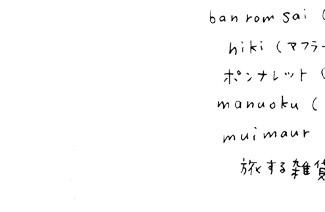 banromsai (
hiki (マフラー
ポンナレット (
manuoku (
muimaur
旅する雑貨